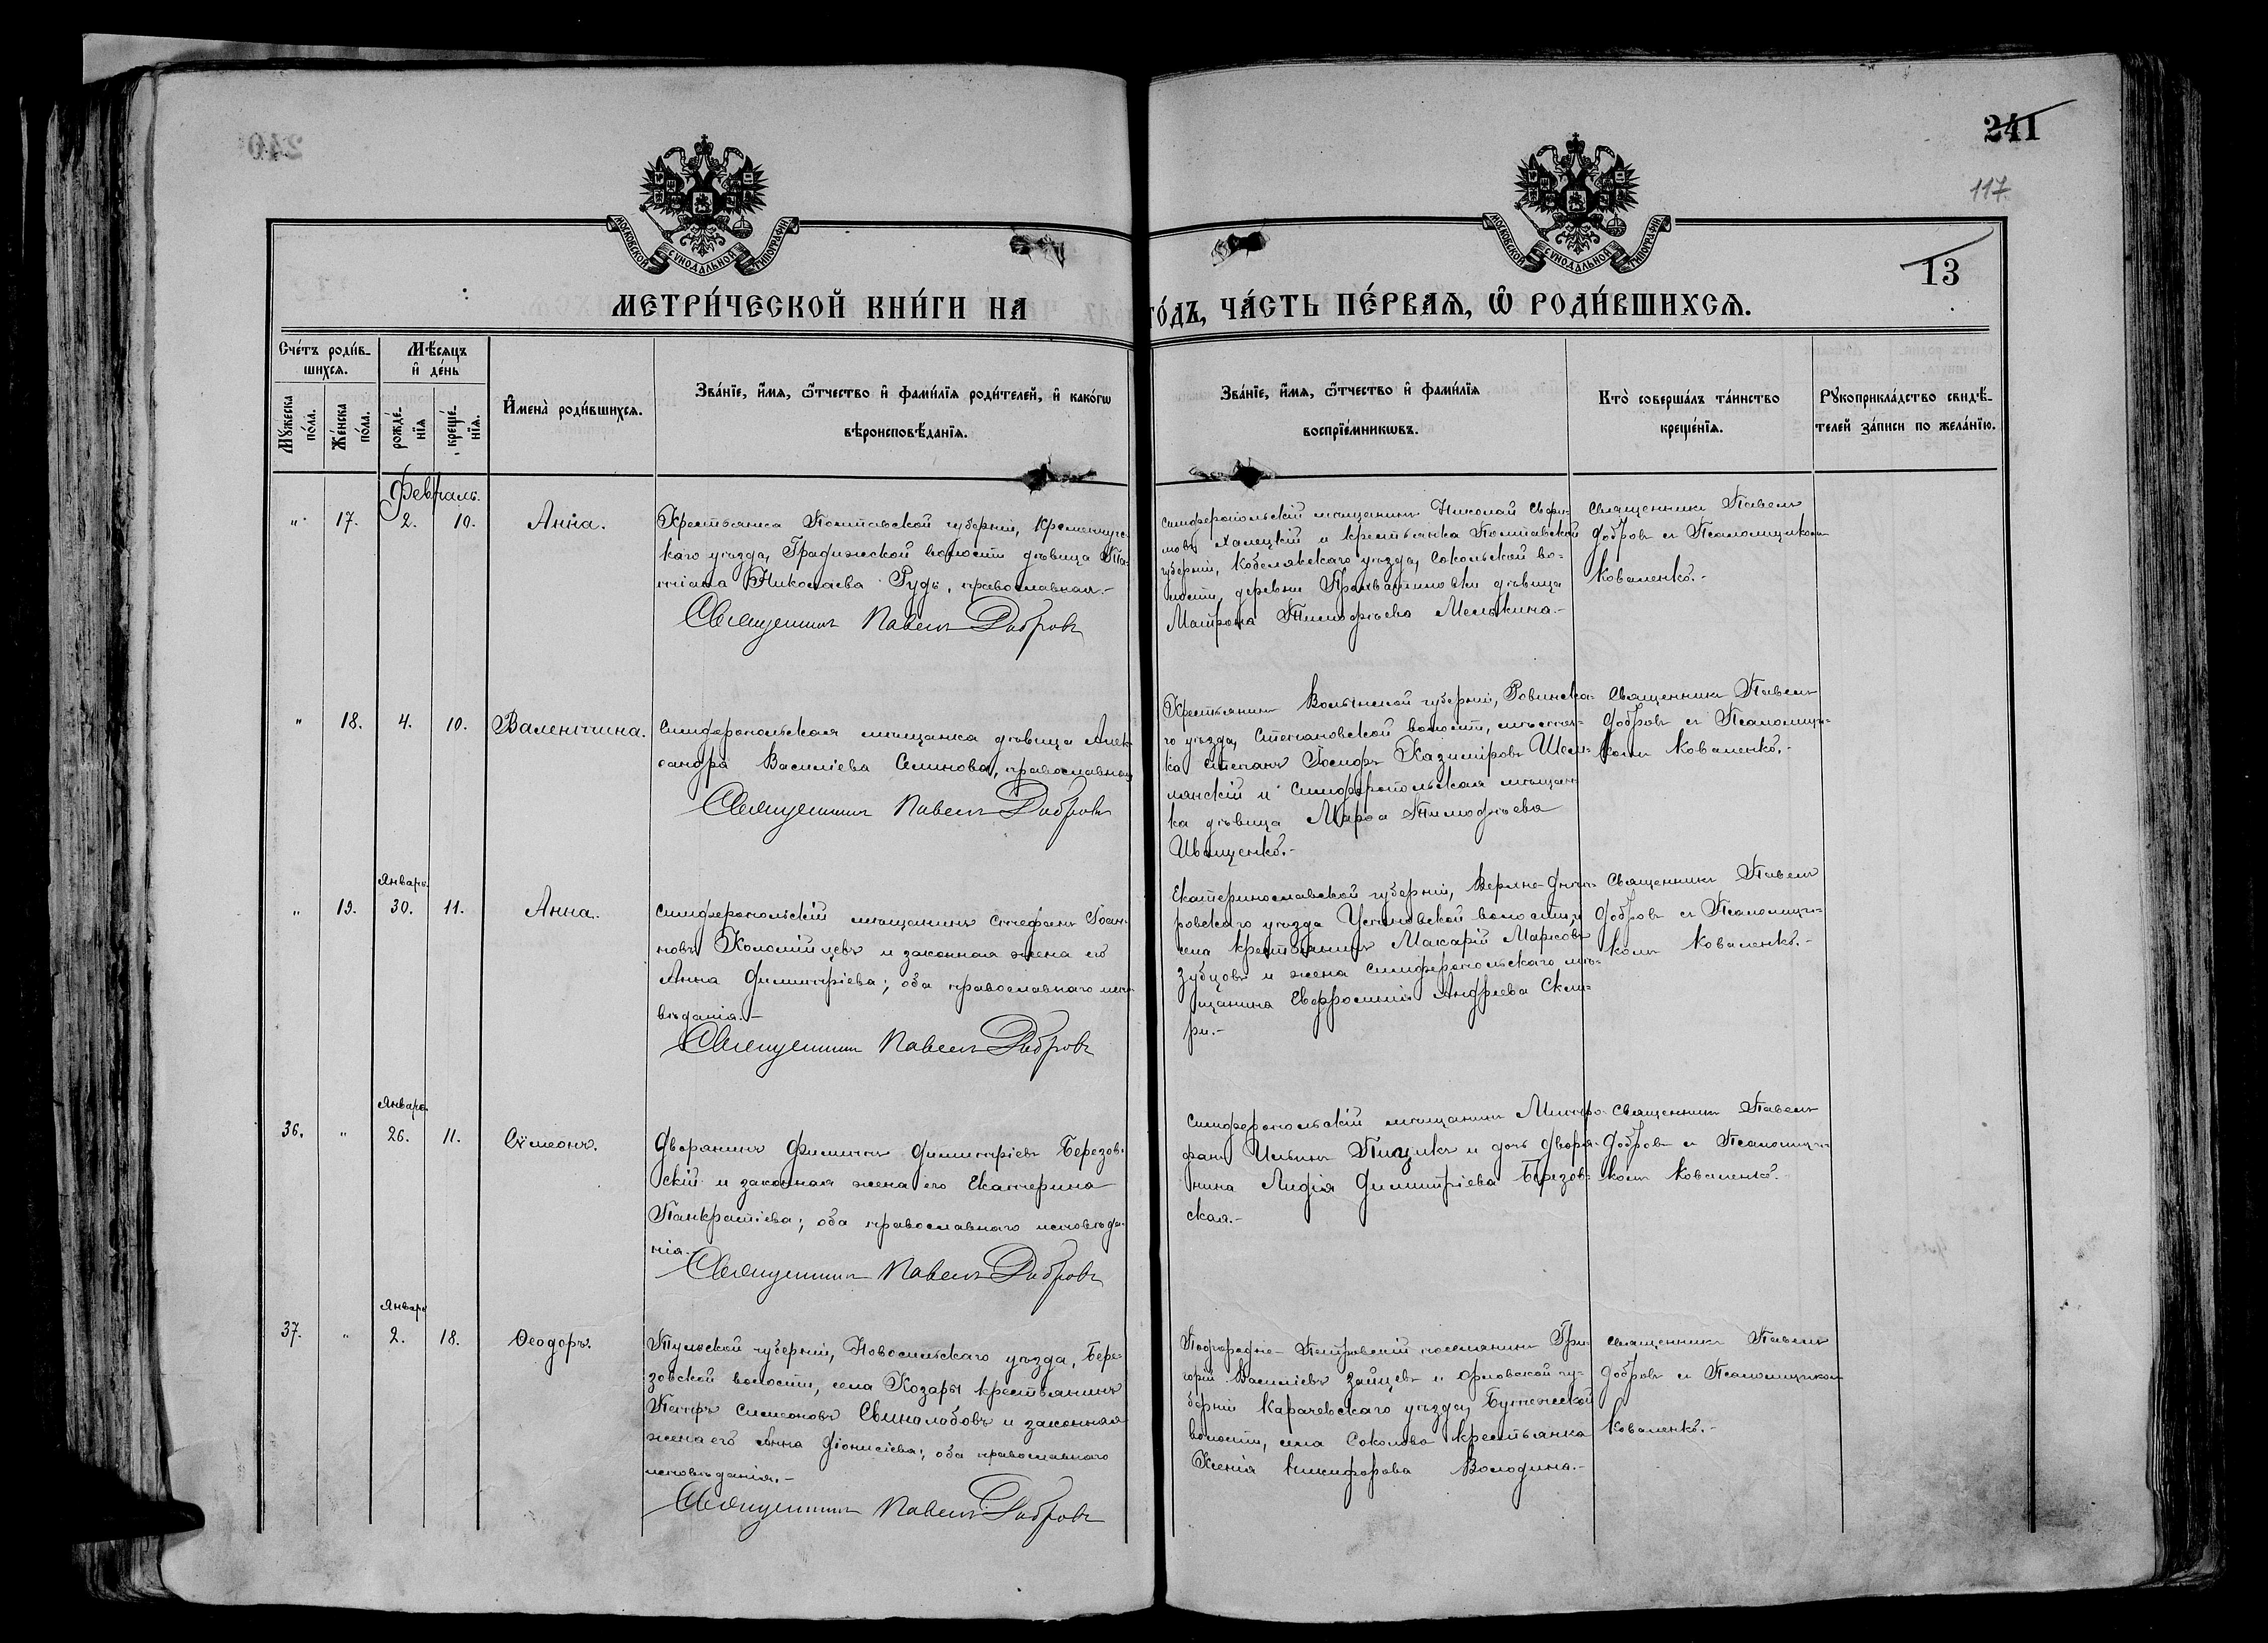 241
117
13
МОСКОВСКОЙ СѴНОДАЛЬНОЙ ТИПОГРАФІИ
МОСКОВСКОЙ СѴНОДАЛЬНОЙ ТИПОГРАФІИ
МЕТРИ́ЧЕСКОЙ КНИ́ГИ НА
ГО́ДЪ, ЧА́СТЬ ПЕ́РВАЯ, Ѡ҆ РОДИ́ВШИХСЯ.
Сче́тъ роди́в-
шихся.
Мꙋ́жеска
по́ла.
Же́нска
по́ла.
Мѣ́сяцъ
и҆ де́нь
рожде́-
нія
креще́-
нія.
И҆мена̀ роди́вшихся.
Зва́нїе, и҆́мя, ѻ҆́тчество и҆ фами́лїя роди́телей, и҆ како́гѡ
вѣроисповѣ́данїя.
Зва́нїе, и҆́мя, ѻ҆́тчество и҆ фами́лїя
воспрїе́мникѡвъ.
Кто̀ соверша́лъ та́инство
креще́нїя.
Рꙋкоприкла́дство свидѣ́-
телей за́писи по жела́нїю.
Февраль.
" 17. 2. 10. Анна.
Крестьянка Полтавской губерніи, Кременчугс-
каго уѣзда, Градижской волости дѣвица Та-
тіана Николаева Рудь, православная.-
Священникъ Павелъ Добровъ
Симферопольскій мѣщанинъ Николай
Халецкій и крестьянка Полтавской
губерніи, Кобелякскаго уѣзда, Сокольской во-
лости, деревни дѣвица
Матрона Тимофѣева Мелькина.-
Священникъ Павелъ
Добровъ съ Псаломщикомъ
Коваленко.-
" 18. 4. 10. Валентина.
Симферопольская мѣщанка дѣвица Алек-
сандра Василіева Семинова, православная
Священникъ Павелъ Добровъ
Крестьянинъ Волынской губерніи, Ровинска-
го уѣзда, Степановской волости, мѣстеч-
ка Степань Іосифъ Казиміровъ Шем-
лянскій и Симферопольская мѣщан-
ка дѣвица Марѳа Тимофѣева
Иващенко.-
Священникъ Павелъ
Добровъ съ Псаломщи-
комъ Коваленко.-
Январь.
" 19. 30. 11. Анна.
Симферопольскій мѣщанинъ Стефанъ Іоан-
новъ Коломійцевъ и законная жена его
Анна Димитріева; оба православнаго испо-
вѣданія.-
Священникъ Павелъ Добровъ
Екатеринославской губерніи, Верхне-Днѣп-
ровскаго уѣзда волости,
села крестьянинъ Макарій Марковъ
Зубцовъ и жена Симферопольскаго мѣ-
щанина Евфросинія Андреева Ски-
ри.-
Священникъ Павелъ
Добровъ съ Псаломщи-
комъ Коваленко.-
Январь.
36. " 26. 11. Сѵмеонъ.
Дворянинъ Филиппъ Димитріевъ Березов-
скій и законная жена его Екатерина
Панкратіева; оба православнаго исповѣда-
нія.-
Священникъ Павелъ Добровъ
Симферопольскій мѣщанинъ Митро-
фанъ Ильинъ Пищикъ и дочь дворя-
нина Лидія Димитріева Березов-
ская.-
Священникъ Павелъ
Добровъ съ Псаломщи-
комъ Коваленко.
Январь
37. " 2. 18. Ѳеодоръ.
Тульской губерніи, Новосильскаго уѣзда, Бере-
зовской волости, села Козары крестьянинъ
Петръ Симеоновъ Свинолобовъ и законная
жена его Анна Діонисіева; оба православнаго
исповѣданія.-
Священникъ Павелъ Добровъ
Подгородне-Петровскій поселянинъ Гри-
горій Василіевъ Зайцевъ и Орловской гу-
берніи Карачевскаго уѣзда,
волости, села Соколова крестьянка
Ксенія Никифорова Володина.-
Священникъ Павелъ
Добровъ съ Псаломщикомъ
Коваленко.-